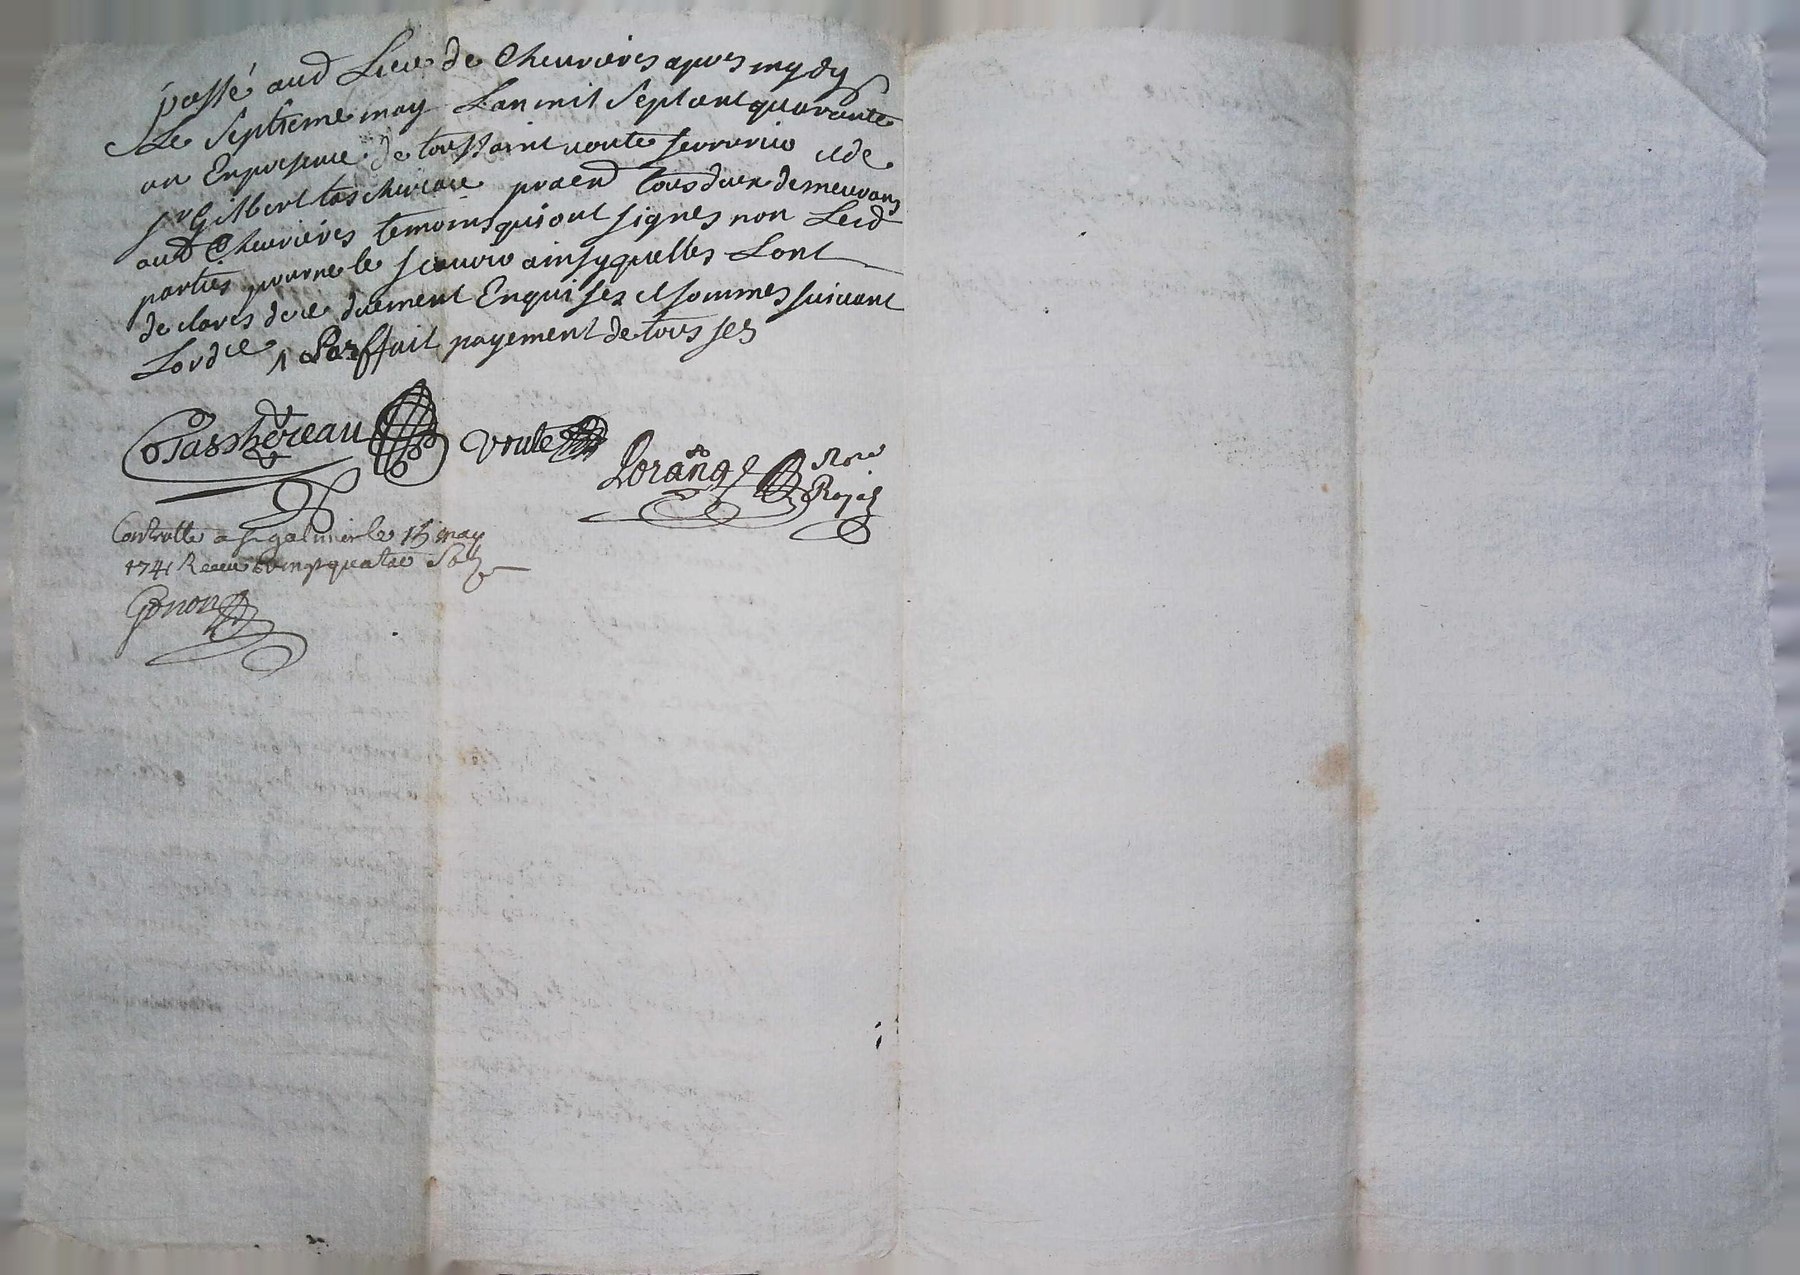 passé aud Lieu de Cheurieres apres mydy
Le septieme may Lan mil sept cent quarante
un En presence de toussaint voute serrurier et de
sr Gilbert taschereau praen tous deux demeurans
aud Cheurieres temoins qui ont signes non Lesd
parties pour ne le scauoir ainsy quelles Lont
declarés de ce duement Enquises et sommes suivant
Lordce 1 Parffait payement de tous ses
Tasshereau voute Lorang Nore
Royal
Controlle a st galmier le 15 may
1741 Receu vingt quatre sols
Gonon